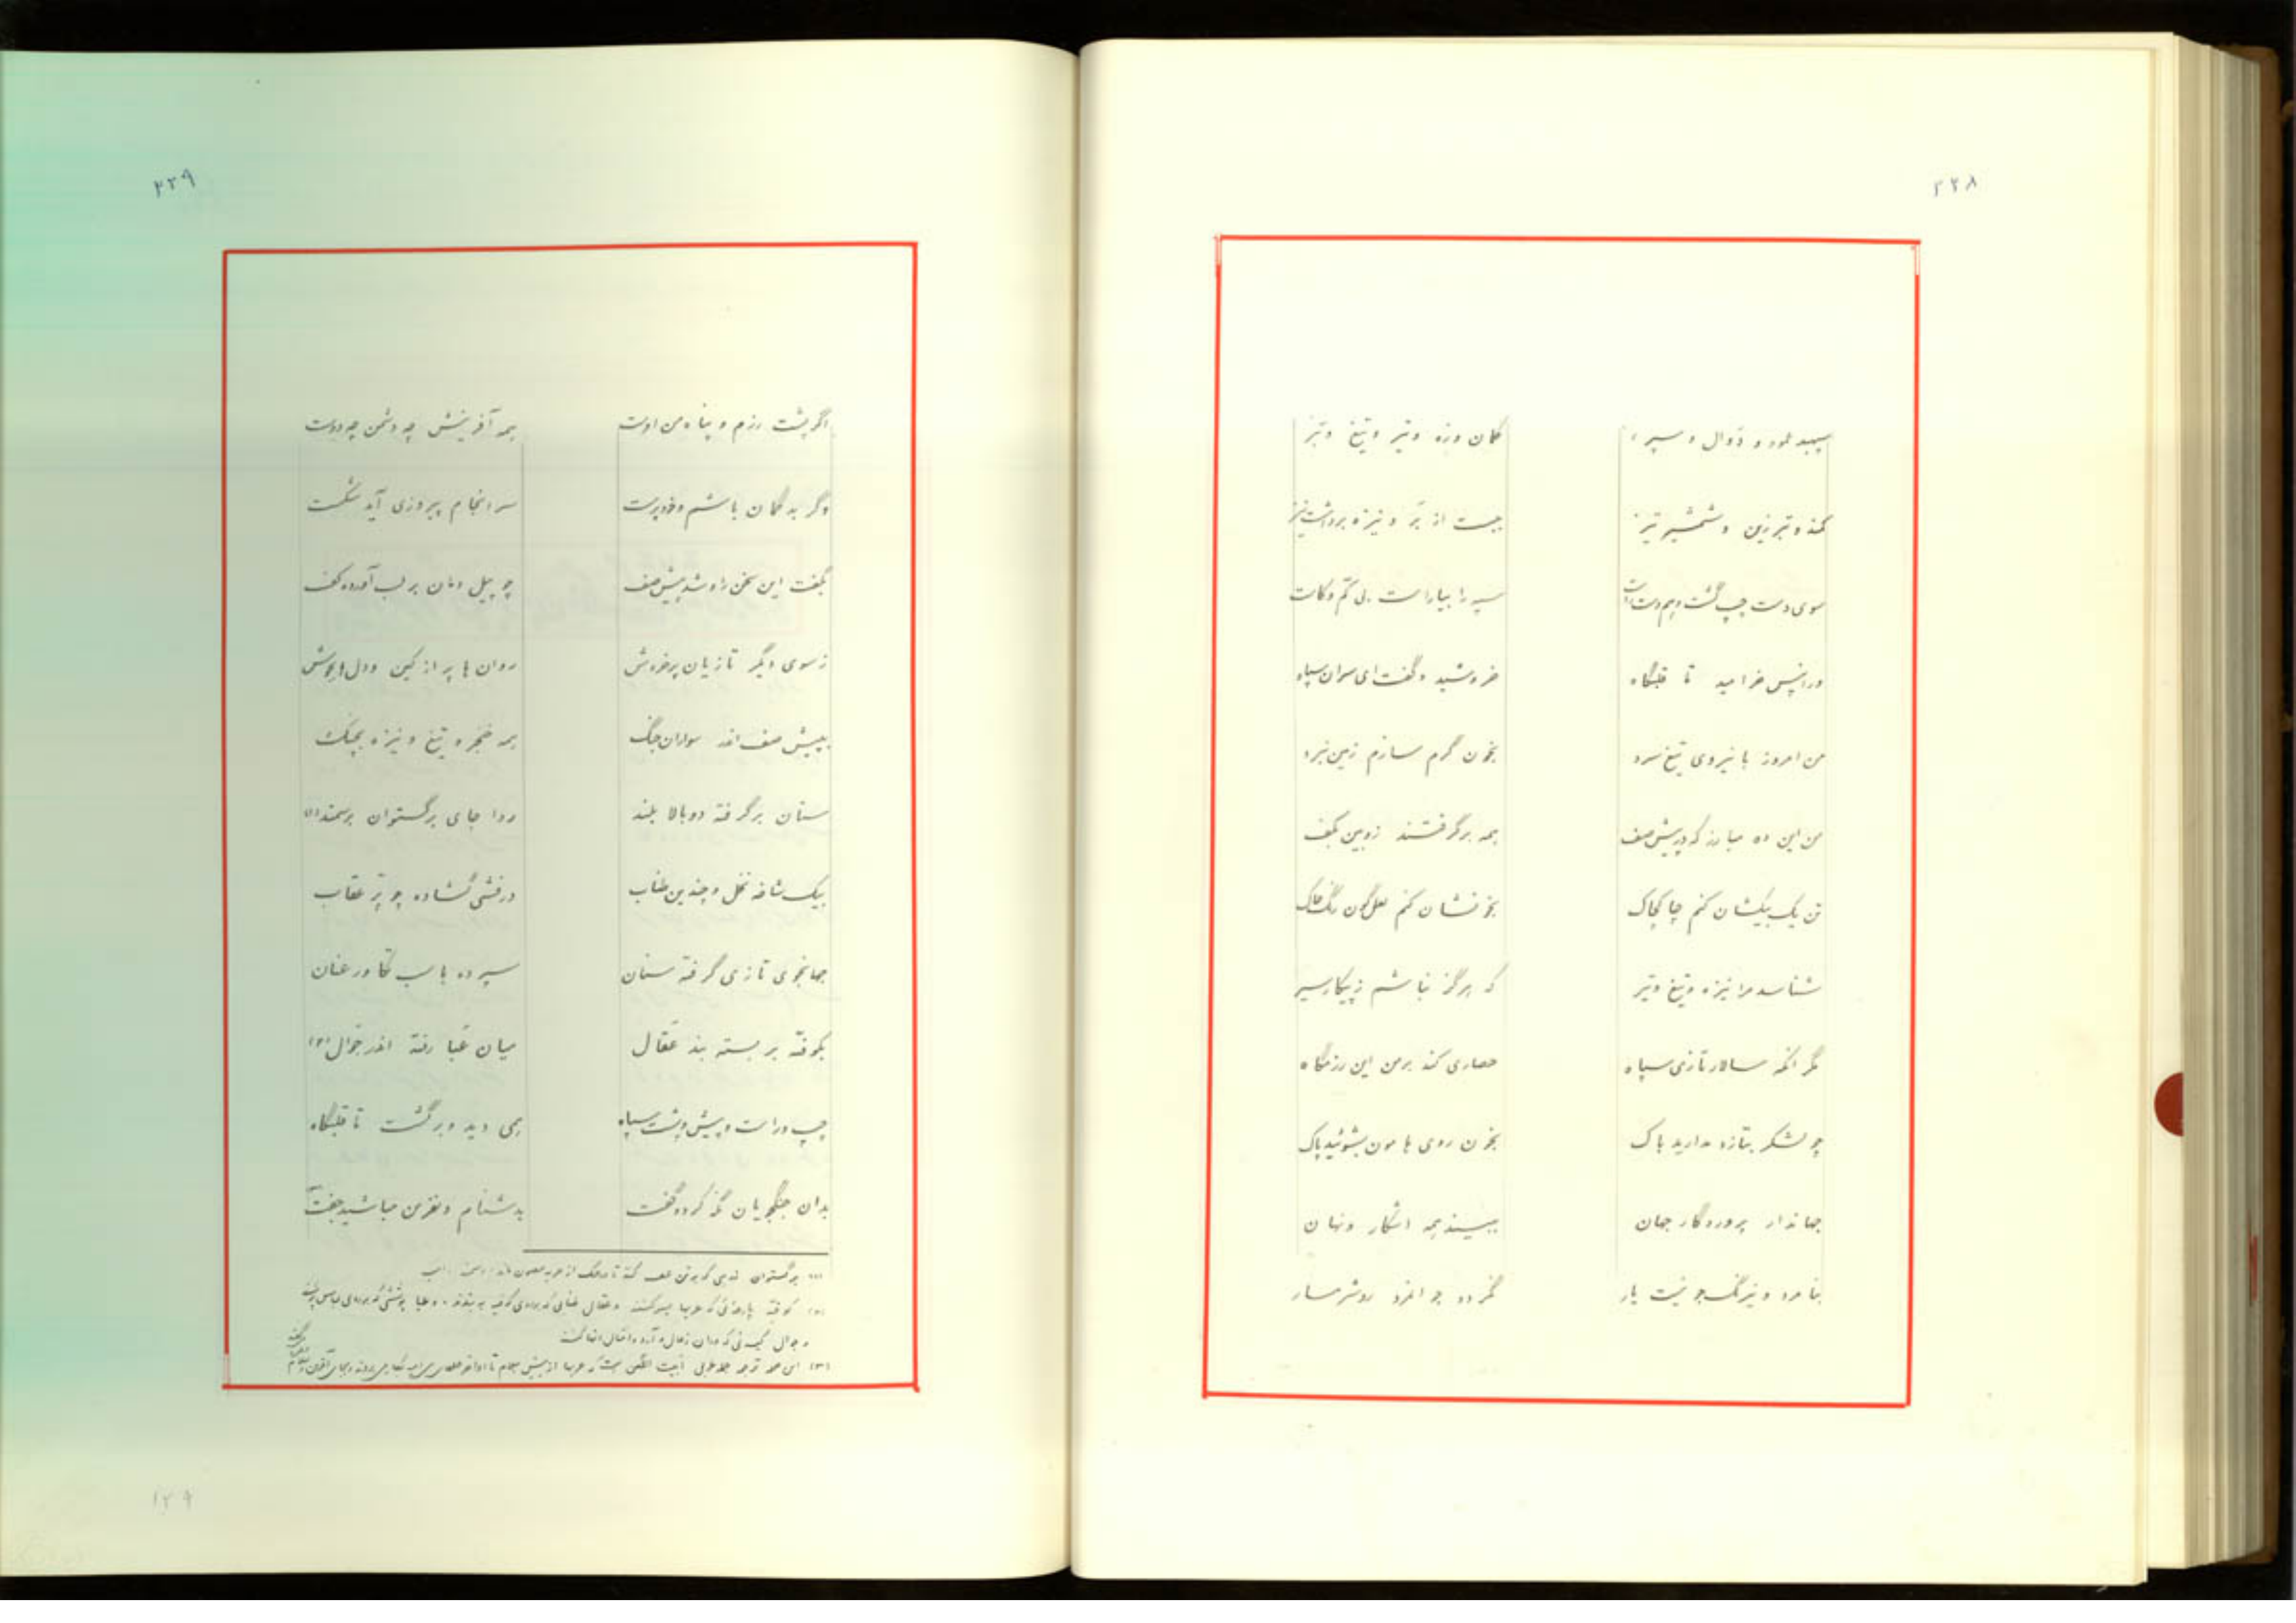 ۲۲۸
سپهبد عمود و دوال و سپر
کمان و زه و تیر و تیغ و تبر
کمند و تبرزین و شمشیر تیز
ببست از بر و نیزه برداشت نیز
سوی دست چپ گشت و هم دست راست
سپه را بیاراست بی کم و کاست
وز آنپس خرامید تا قلبگاه
خروشید و گفت ای سران سپاه
من امروز با نیروی تیغ سرد
بخون گرم سازم زمین نبرد
من این ده مبارز که در پیش صف
همه برگرفتند زوبین بکف
تن یک بیکشان کنم چاکچاک
بخونشان کنم لعل گون رنگ خاک
شناسد مرا نیزه و تیغ و تیر
که هرگز نباشم ز پیکار سیر
مگر آنکه سالار تازی سپاه
حصاری کند بر من این رزمگاه
چو لشکر بتازد مدارید باک
بخون روی هامون بشوئید پاک
جهاندار پروردگار جهان
ببیند همه آشکار و نهان
بنامرد و نیرنگ جو نیست یار
نگردد جوانمرد رو شرمسار
۲۲۹
اگر پشت رزم و پناه من اوست
همه آفرینش چه دشمن چه دوست
وگر بد گمان باشم و خودپرست
سرانجام پیروزی آید شکست
بگفت این سخن راو شد پیش صف
چو پیل دمان بر لب آورده کف
ز سوی دیگر تازیان پر خروش
روان ها پر از کین و دل ها بجوش
بپیش صف اندر سواران جنگ
همه خنجر و تیغ و نیزه بچنگ
سنان برگرفته دو بالا بلند
ردا جای برگستوان بر سمند (۱)
بیک شاخه نخل و چندین طناب
درفشی گشاده چو پر عقاب
جهانجوی تازی گرفته سنان
سپرده باسب تکاور عنان
بکوفته بر بسته بند عقال
میان عبا رفته اندر جوال (۲)
چپ و راست و پیش و پشت سپاه
همی دید و برگشت تا قلبگاه
بدان جنگجویان نگه کرد و گفت
بدشنام و نفرین مباشید جفت
(۱) برگستوان
(۲) کوفیه پارچه‌ئی که عربها بسر کنند و عقال
و جوال کیسه‌ئی که در آن زغال و آرد و امثال آنها کنند
(۳) این جمله ترجمه جمله عربی ابیت اللعن است که عربها از پیش از اسلام تا اواخر
۱۲۹